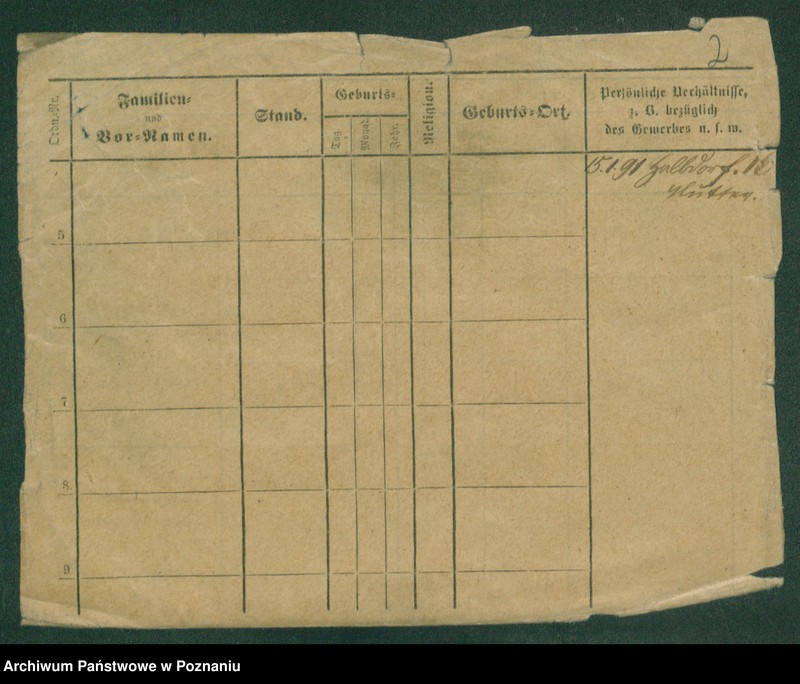 2
Ordn.-Nr.
Familien-
und
Vor-Namen.
Stand.
Geburts-
Tag
Monat.
Jahr.
Religion.
Geburts-Ort.
Persönliche Verhältnisse,
z. B. bezüglich
des Gewerbes u. s. w.
15.1.91 Halbdorf.
Mutter.
5
6
7
8
9
Archiwum Państwowe w Poznaniu